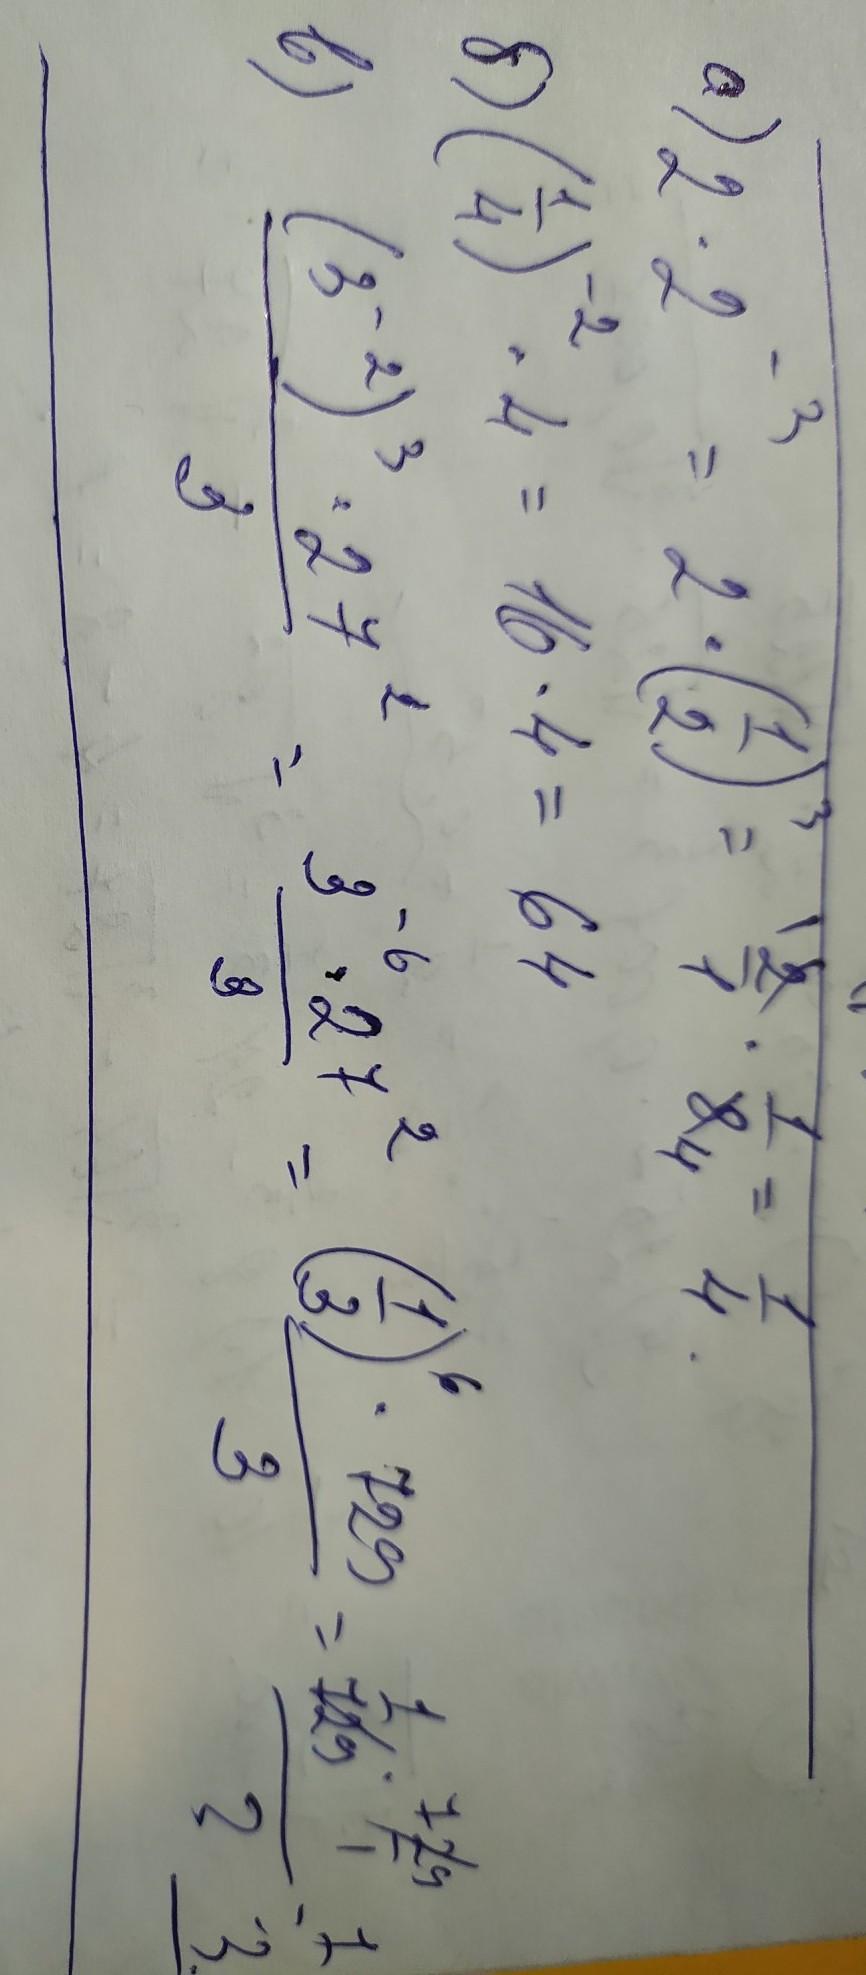 а) 2 · 2⁻³ = 2 · (1/2)³ = 2/1 · 1/8 = 1/4.
б) (1/4)⁻² · 4 = 16 · 4 = 64
в) (3⁻²)³ · 27² / 3 = 3⁻⁶ · 27² / 3 = (1/3)⁶ · 729 / 3 = 1/729 · 729/1 / 2 = 1/3